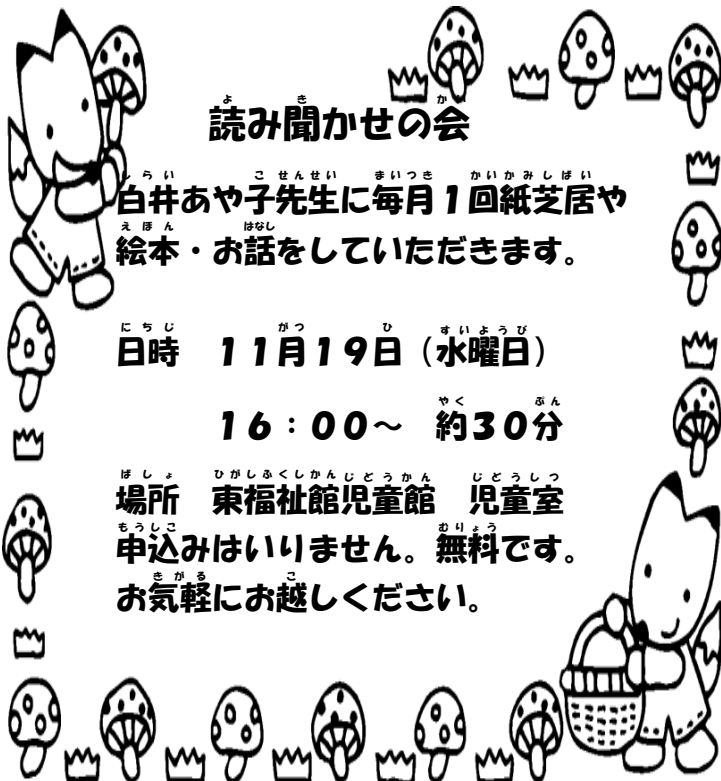 読み聞かせの会
白井あや子先生に毎月1回紙芝居や
絵本・お話をしていただきます。
日時　11月19日（水曜日）
16：00～　約30分
場所　東福祉館児童館　児童室
申込みはいりません。無料です。
お気軽にお越しください。